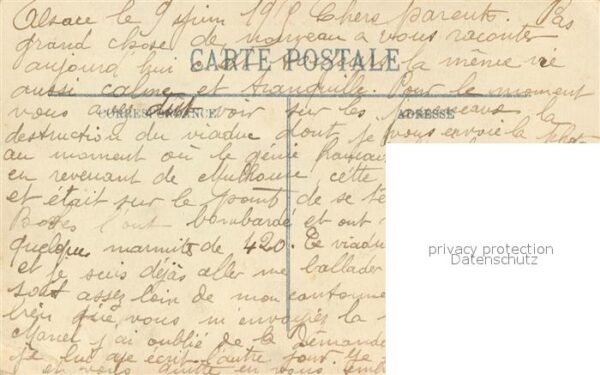 Alsace le 9 Juin 191 Chers parents. Pas
grand chose de nouveau a vous raconter
CARTE POSTALE
aujourd'hui c'est la même vie
aussi calme et tranquille. Pour le moment
CORRESPONDANCE
ADRESSE
vous avez dut voir sur les journeaux la
destruction du viaduc dont je vous envoie la phot
au moment où le génie
en revenant de Mulhouse cette
et était sur le point de se
Boches l'ont bombardé et ont
quelques marmites de 420. Ce viadu
et je suis déjàs aller me ballader
sont assez loin de mon cantonne
bien que vous m'envoyiez la
j'ai oublié de la demande
je lui ai écrit l'autre jour. Je
et vous quitte en vous emb
privacy protection
Datenschutz